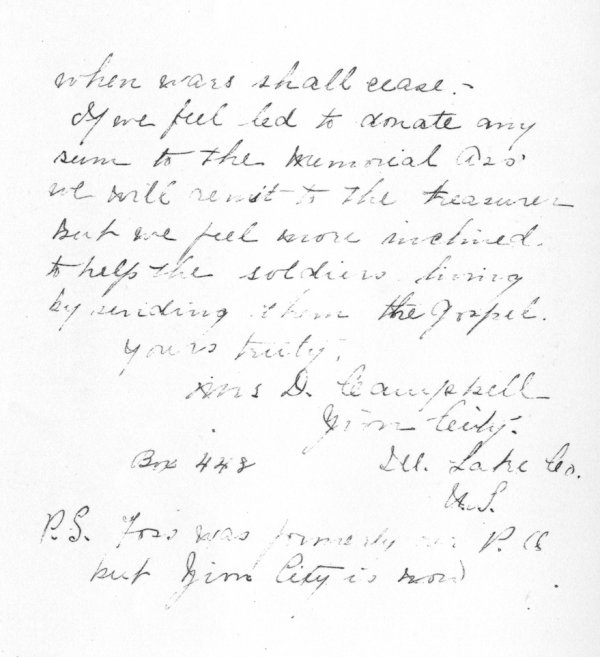 when wars shall cease.-
If we feel led to donate any
sum to the Memorial Aso'
we will remit to the treasurer
But we feel more inclined
to help the soldiers living
by sending them the Gospel.
Yours truly,
Mrs D. Campbell
Zion City.
Box 448 Ill. Lake Co.
U.S.
P.S. was formerly our P.O
but Zion City is now